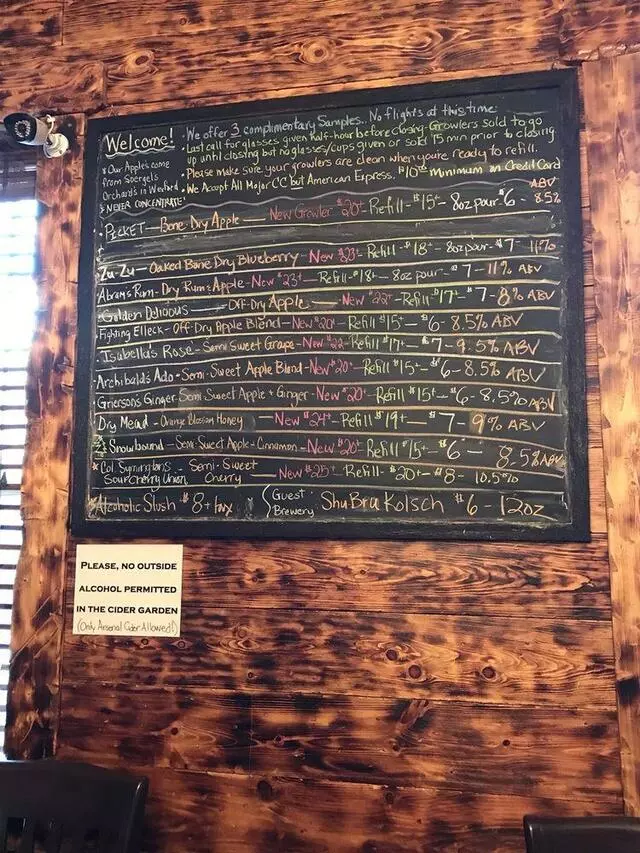 Welcome!
• We offer 3 complimentary Samples. No flights at this time.
• Last call for glasses given half-hour before closing. Growlers sold to go
up until closing but no glasses/cups given or sold 15 min prior to closing
• Please make sure your growlers are clean when you're ready to refill.
• We Accept All Major CC but American Express. $10⁰⁰ minimum on Credit Card
* Our Apples come
from Soergels
Orchards in Wexford
* NEVER CONCENTRATE!
ABV
• PICKET — Bone Dry Apple — New Growler $20+ - Refill - $15+ - 8oz pour $6 - 8.5%
Zu-Zu - Oaked Bone Dry Blueberry - New $23+ - Refill - $18+ - 8oz pour - $7 - 11%
Abrams Rum - Dry Rum & Apple - New $23+ - Refill - $18+ - 8oz pour - $7 - 11% ABV
• Golden Delicious — Off-Dry Apple — New $22+ - Refill - $17+ - $7 - 8% ABV
Fighting Elleck - Off-Dry Apple Blend - New $20+ - Refill $15+ - $6 - 8.5% ABV
• Isabella's Rosé - Semi Sweet Grape - New $22 - Refill $17+ - $7 - 9.5% ABV
• Archibald's Ado - Semi-Sweet Apple Blend - New $20+ - Refill $15+ - $6 - 8.5% ABV
Griersons Ginger - Semi Sweet Apple + Ginger - New $20+ - Refill $15+ - $6 - 8.5% ABV
Dry Mead - Orange Blossom Honey — New $24+ - Refill $19+ - $7 - 9% ABV
Snowbound - Semi-Sweet Apple + Cinnamon - New $20+ - Refill $15+ - $6 - 8.5% ABV
* Col. Symingtons - Semi-Sweet
Sour Cherry Union, Cherry — New $25+ - Refill - $20+ - $8 - 10.5%
* Alcoholic Slush $8 + tax
Guest Brewery • ShuBru Kolsch $6 - 12oz
PLEASE, NO OUTSIDE
ALCOHOL PERMITTED
IN THE CIDER GARDEN
(Only Arsenal Cider Allowed!)